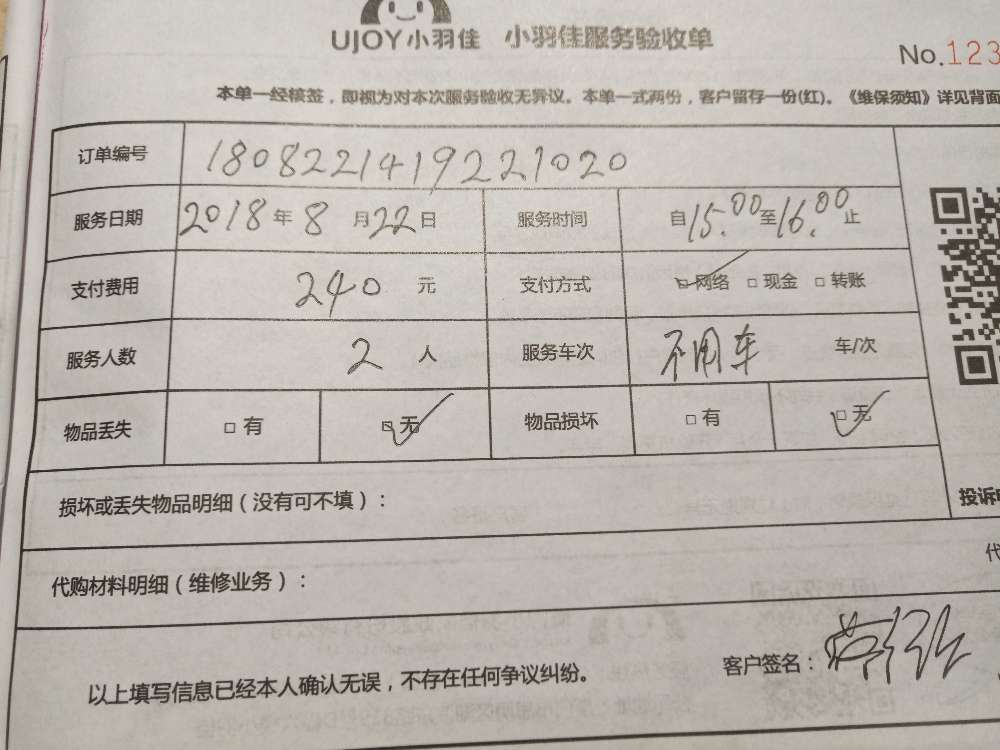 UJOY小羽佳 小羽佳服务验收单
No.123
本单一经核签，即视为对本次服务验收无异议。本单一式两份，客户留存一份(红)。《维保须知》详见背面
订单编号 1808221419221020
服务日期 2018年8月22日 服务时间 自15.00至16.00止
支付费用 240 元 支付方式 □网络 □现金 □转账
服务人数 2 人 服务车次 不用车 车/次
物品丢失 □有 □无 物品损坏 □有 □无
损坏或丢失物品明细（没有可不填）：
投诉
代购材料明细（维修业务）：
以上填写信息已经本人确认无误，不存在任何争议纠纷。 客户签名：